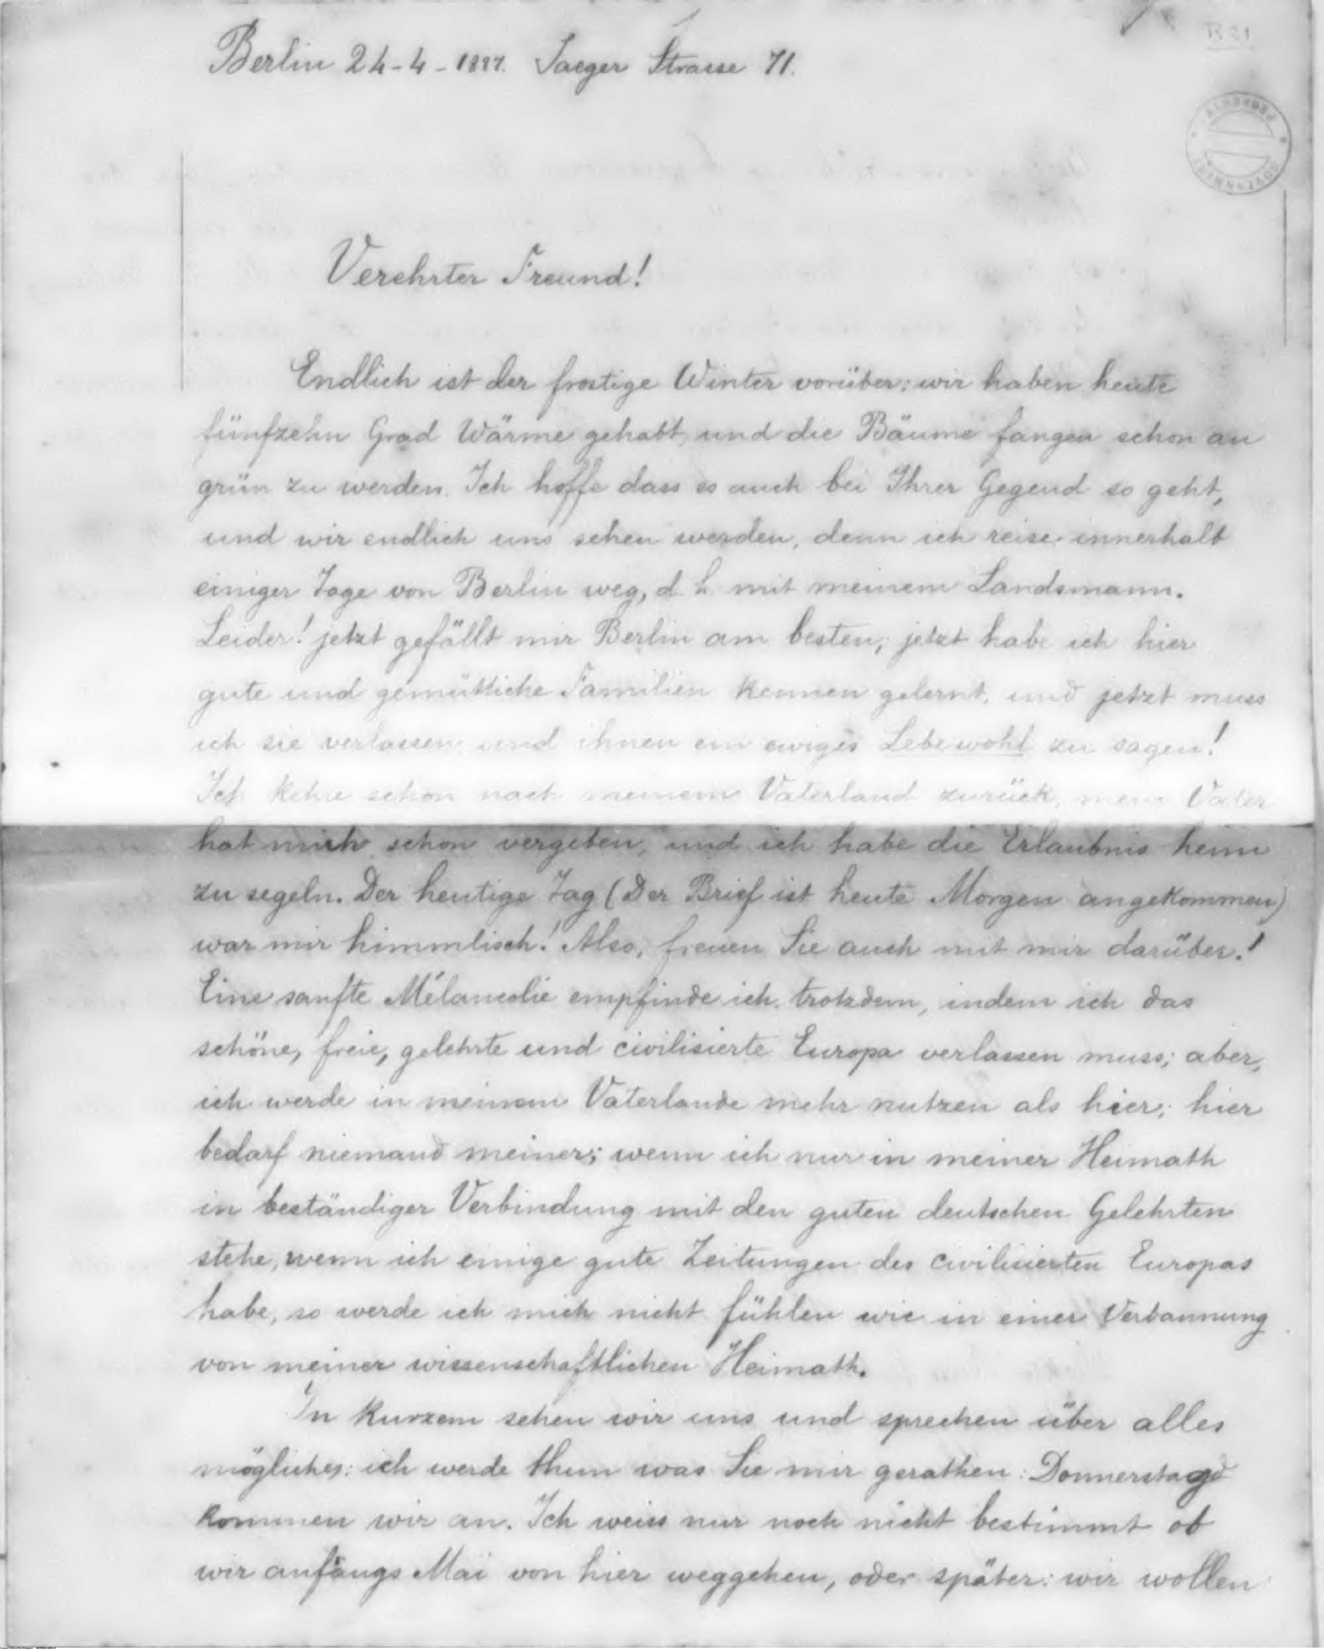 Berlin 24-4-1887. Jaeger Strasse 71.
B 21
Verehrter Freund!
Endlich ist der frostige Winter vorüber: wir haben heute
fünfzehn Grad Wärme gehabt, und die Bäume fangen schon an
grün zu werden. Ich hoffe dass es auch bei Ihrer Gegend so geht,
und wir endlich uns sehen werden, denn ich reise innerhalb
einiger Tage von Berlin weg, d. h. mit meinem Landsmann.
Leider! jetzt gefällt mir Berlin am besten; jetzt habe ich hier
gute und gemütliche Familien kennen gelernt, und jetzt muss
ich sie verlassen und ihnen ein ewiges Lebewohl zu sagen!
Ich kehre schon nach meinem Vaterland zurück, mein Vater
hat mich schon vergeben, und ich habe die Erlaubnis heim
zu segeln. Der heutige Tag (Der Brief ist heute Morgen angekommen)
war mir himmlisch! Also, freuen Sie auch mit mir darüber!
Eine sanfte Mélancolie empfinde ich trotzdem, indem ich das
schöne, freie, gelehrte und civilisierte Europa verlassen muss; aber,
ich werde in meinem Vaterlande mehr nutzen als hier; hier
bedarf niemand meiner; wenn ich nur in meiner Heimath
in beständiger Verbindung mit den guten deutschen Gelehrten
stehe, wenn ich einige gute Zeitungen des civilisierten Europas
habe, so werde ich mich nicht fühlen wie in einer Verbannung
von meiner wissenschaftlichen Heimath.
In kurzem sehen wir uns und sprechen über alles
mögliches: ich werde thun was Sie mir gerathen: Donnerstag
kommen wir an. Ich weiss nur noch nicht bestimmt ob
wir anfangs Mai von hier weggehen, oder später: wir wollen